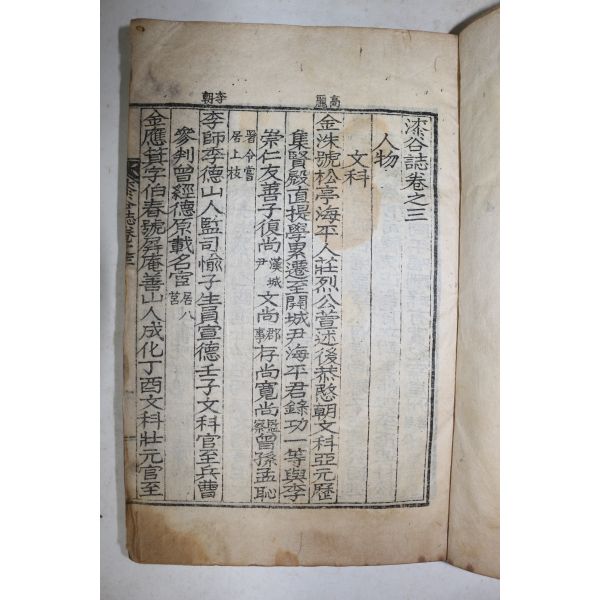 漆谷誌卷之三
人物
文科
高麗
金洙號松亭海平人莊烈公萱述後恭愍朝文科亞元歷
集賢殿直提學累遷至開城尹海平君錄功一等與李
崇仁友善子復尚漢城尹文尚郡事存尚寬尚監察曾孫孟恥
署令嘗居上枝
李朝
李師季德山人監司愉子生員宣德壬子文科官至兵曹
參判曾經德原載名宦居八莒
金應箕字伯春號屏庵善山人成化丁酉文科壯元官至